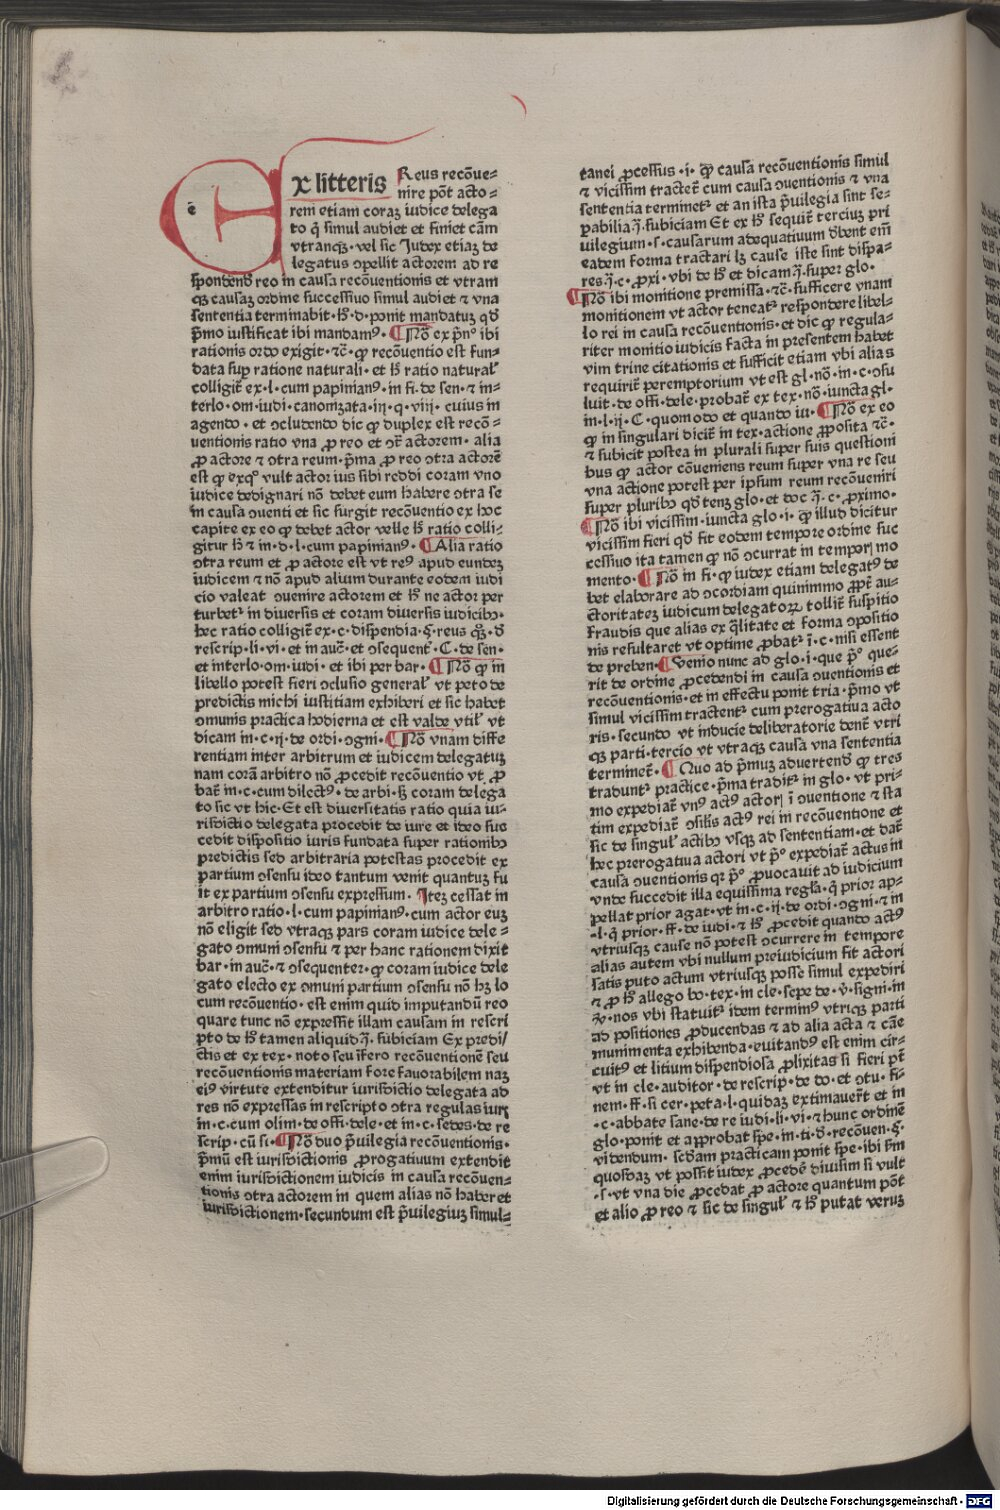 Ex litteris Reus recōue-
nire pōt acto-
rem etiam coraꝫ iudice delega
to q̄ simul audiet et finiet cām
vtranqꝫ · vel sic Iudex etiaꝫ de
legatus ɔpellit actorem ad re
spondendꝰ reo in causa recōuentionis et vtram
qꝫ causaꝫ ordine successiuo simul audiet ⁊ vna
sententia terminabit · ponit mandatuꝫ qđ
p̄mo iustificat ibi mandamꝰ · ¶ Nō ex p̄nº ibi
rationis ordo exigit · ⁊c̄ · ꝙ recōuentio est fun-
data suꝑ ratione naturali · et ratio natural̛
colligit̄ ex · l · cum papinianꝰ · in fi · de sen · ⁊ in-
terlo · om · iudi · canonizata · iij · q · viij · cuius in
agendo · et ɔcludendo dic ꝙ duplex est recō-
uentionis ratio vna ꝓ reo et ɔtͣ actorem · alia
ꝓ actore ⁊ ɔtra reum · p̄ma ꝓ reo ɔtra actorē
est ꝙ exqº vult actor ius sibi reddi coram vno
iudice dedignari nō debet eum habere ɔtra se
in causa ɔuenti et sic surgit recōuentio ex hoc
capite ex eo ꝙ debet actor velle ratio colli-
gitur ⁊ in · d · l · cum papinianꝰ · ¶ Alia ratio
ɔtra reum et ꝓ actore est vt reꝰ apud eundeꝫ
iudicem ⁊ nō apud alium durante eodem iudi
cio valeat ɔuenire actorem et ne actor per
turbetᷣ in diuersis et coram diuersis iudicibꝫ ·
hec ratio colligit̄ ex · c · dispendia · §̄ · reus · đ
rescrip · li · vi · et in auc̄ · et ɔsequent̛ · C · de sen ·
et interlo · om · iudi · et ibi per bar · ¶ Nō ꝙ in
libello potest fieri ɔclusio general̛ vt peto de
predictis michi iustitiam exhiberi et sic habet
ɔmunis practica hodierna et est valde vtil̛ vt
dicam in · c · ij · de ordi · ɔgni · ¶ Nō vnam diffe
rentiam inter arbitrum et iudicem delegatuꝫ
nam corā arbitro nō ꝓcedit recōuentio vt ꝓ
bat̄ in · c · cum dilectꝰ · de arbi · coram delega
to sic vt hic · Et est diuersitatis ratio quia iu-
risdictio delegata procedit de iure et ideo suc
cedit dispositio iuris fundata super rationibꝫ
predictis sed arbitraria potestas procedit ex
partium ɔsensu ideo tantum venit quantuꝫ fu
it ex partium ɔsensu expressum · Iteꝫ cessat in
arbitro ratio · l · cum papinianꝰ · cum actor euꝫ
nō eligit sed vtraqꝫ pars coram iudice dele-
gato ɔmuni ɔsensu ⁊ per hanc rationem dixit
bar · in auc̄ · ⁊ ɔsequenter · ꝙ coram iudice dele
gato electo ex ɔmuni partium ɔsensu nō hꝫ lo
cum recōuentio · est enim quid imputandū reo
quare tunc nō expressit illam causam in rescri
pto de tamen aliquid · subiciam Ex predi/
ctis et ex tex · noto seu īfero recōuentionē seu
recōuentionis materiam fore fauorabilem naꝫ
eiꝰ virtute extenditur iurisdictio delegata ad
res nō expressas in rescripto ɔtra regulas iurꝭ
in · c · cum olim · de offi · dele · et in · c · sedes · de re
scrip · cū si · ¶ Nō duo p̄uilegia recōuentionis ·
p̄mū est iurisdictionis ꝓrogatiuum extendit
enim iurisdictionem iudicis in causa recōuen-
tionis ɔtra actorem in quem alias nō haberet
iurisdictionem · secundum est p̄uilegiuꝫ simul-
tanei ꝓcessus · i · causa recōuentionis simul
⁊ vicissim tractet̄ cum causa ɔuentionis ⁊ vna
sententia terminetᷣ et an ista p̄uilegia sint se-
ꝑabilia · subiciam Et ex sequit̄ tercium pri
uilegium · s · causarum adequatiuum dn̄t eīm
eadem forma tractari lꝫ cause iste sint dispa-
res · c · ꝓxi · vbi de et dicam · super glo ·
¶ Nō ibi monitione premissa · ⁊c̄ · sufficere vnam
monitionem vt actor teneatᷣ respondere libel-
lo rei in causa recōuentionis · et dic ꝙ regula-
riter monitio iudicis facta in presentem habet
vim trine citationis et sufficit etiam vbi alias
requirit̄ peremptorium vt est gl · nō · in · c · ɔsu
luit · de offi · dele · probat̄ ex tex · nō · iuncta gl ·
in · l · ij · C · quomodo et quando iu · ¶ Nō ex eo
ꝙ in singulari dicit̄ in tex · actione ꝓposita ⁊c̄ ·
⁊ subicit postea in plurali super suis questioni
bus ꝙ actor cōueniens reum super vna re seu
vna actione potest per ipsum reum recōueniri
super pluribꝰ qđ tenꝫ glo · et doc · c · proximo ·
¶ Nō ibi vicissim · iuncta glo · i · ꝙ illud dicitur
vicissim fieri qđ fit eodem tempore ordine suc
cessiuo ita tamen ꝙ nō ɔcurrat in temporꝭ mo
mento · ¶ Nō in fi · ꝙ iudex etiam delegatꝰ de
bet elaborare ad ɔcordiam quinimmo ꝓpt̄ au-
ctoritateꝫ iudicum delegatoꝝ tollit̄ suspitio
fraudis que alias ex q̄litate et forma ɔpositio
nis resultaret vt optime ꝓbatᷣ ī · c · nisi essent
de preben · ¶ Venio nunc ad glo · i · que p̄º que-
rit de ordine ꝓcedendi in causa ɔuentionis et
recōuentionis · et in effectu ponit tria · p̄mo vt
simul vicissim tractentᷣ cum prerogatiua acto
ris · secundo vt inducie deliberatorie dent̄ vtri
qꝫ parti · tercio vt vtraqꝫ causa vna sententia
terminet̄ · ¶ Quo ad p̄muꝫ aduertendꝰ ꝙ tres
traduntᷣ practice · p̄ma traditᷣ in glo · vt pri-
mo expediat̄ vnꝰ actꝰ actorꝭ ī ɔuentione ⁊ sta
tim expediat̄ ɔsil̛is actꝰ rei in recōuentione et
sic de singul̛ actibꝫ vsqꝫ ad sententiam · et dat̄
hec prerogatiua actori vt p̄º expediat̄ actus in
causa ɔuentionis qꝛ p̄º ꝓuocauit ad iudicium
vnde succedit illa equissima regl̛a · q̄ prior ap-
pellat prior agat · vt in · c · ij · de ordi · ɔgni · ⁊ in
· l · q̄ prior · ff · de iudi · ⁊ ꝓcedit quando actꝰ
vtriusqꝫ cause nō potest ɔcurrere in tempore
alias autem vbi nullum preiudicium fit actori
satis puto actum vtriusqꝫ posse simul expediri
⁊ ꝓ allego bo · tex · in cle · sepe de · v̄ · signi · in
· nos vbi statuitᷣ idem terminꝰ vtriqꝫ parti
ad positiones ꝓducendas ⁊ ad alia acta ⁊ cāe
munimenta exhibenda · euitandꝰ est enim cir-
cuitꝰ et litium dispendiosa ꝓlixitas si fieri pt̄
vt in cle · auditor · de rescrip · de do · et ɔtu · fi-
nem · ff · si cer · peta · l · quidaꝫ extimauerūt et in
· c · abbate sane · de re iudi · li · vi · ⁊ hunc ordinē
glo · ponit et approbat spe · in · ti · đ · recōuen · §̄ ·
videndum · scđam practicam ponit spe · ibi s̄m
quosdaꝫ vt possit iudex ꝓcedē diuisim si vult
· s · vt vna die ꝓcedat ꝓ actore quantum pōt
et alio ꝓ reo ⁊ sic de singul̛ ⁊ putat veruꝫ
Digitalisierung gefördert durch die Deutsche Forschungsgemeinschaft - DFG